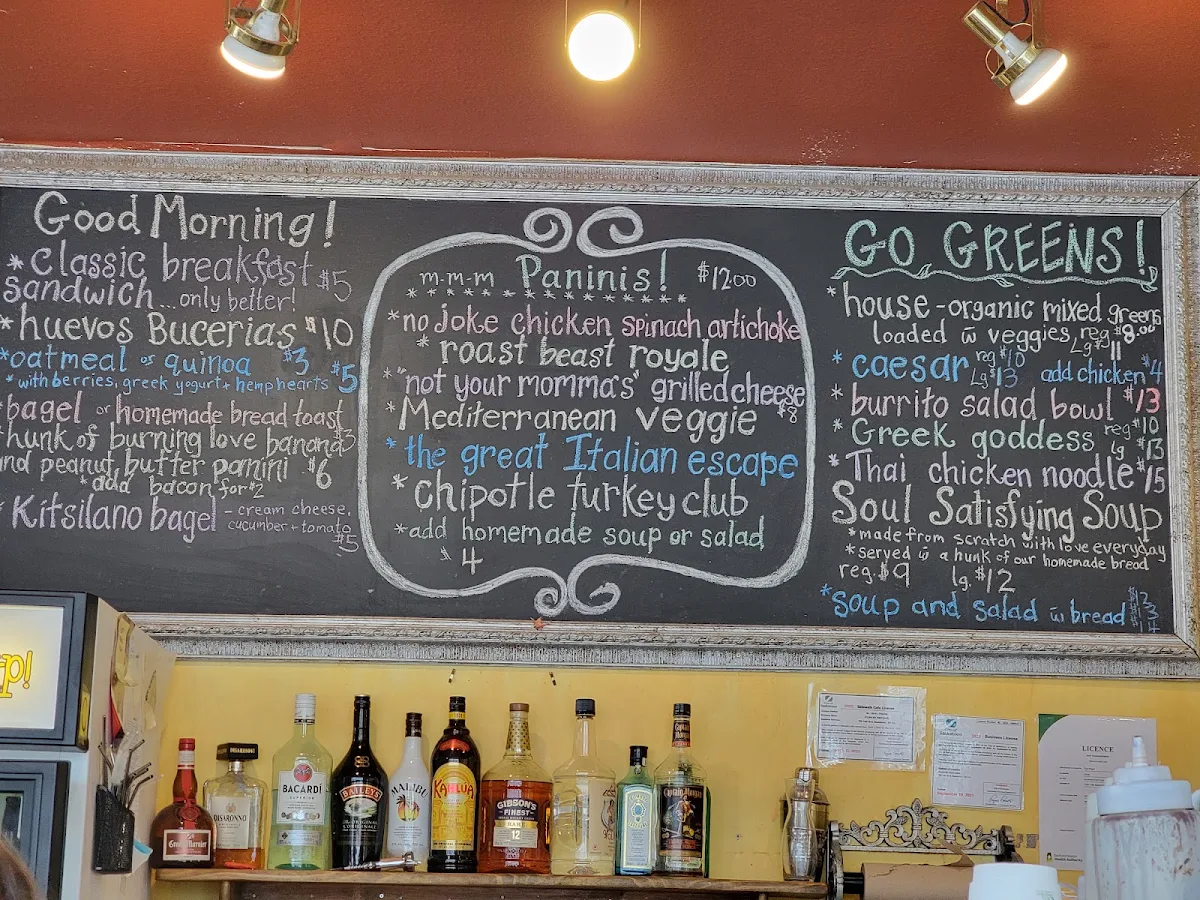 Good Morning!
*classic breakfast $5
sandwich...only better!
*huevos Bucerias $10
*oatmeal or quinoa $3
*with berries, greek yogurt + hemp hearts $5
*bagel or homemade bread toast
hunk of burning love banana $3
and peanut butter panini $6
*add bacon for $2
*Kitsilano bagel - cream cheese,
cucumber + tomato
$5
m-m-m Paninis! $12.00
*no joke chicken spinach artichoke
*roast beast royale
*"not your momma's" grilled cheese
$8
*Mediterranean veggie
*the great Italian escape
*chipotle turkey club
*add homemade soup or salad
$4
GO GREENS!
*house - organic mixed greens
loaded w̄ veggies reg $8.00
Lg $11
*caesar reg $10 add chicken $4
Lg $13
*burrito salad bowl $13
*Greek goddess reg $10
lg $13
*Thai chicken noodle $15
Soul Satisfying Soup
*made from scratch with love everyday
*served w̄ a hunk of our homemade bread
reg. $9 lg. $12
*soup and salad w̄ bread
BACARDÍ
SUPERIOR
DISARONNO
DISARONNO
Grand Marnier
BAILEYS
MALIBU
KAHLÚA
GIBSON'S
FINEST
RARE
12
Captain Morgan
Business License
LICENCE